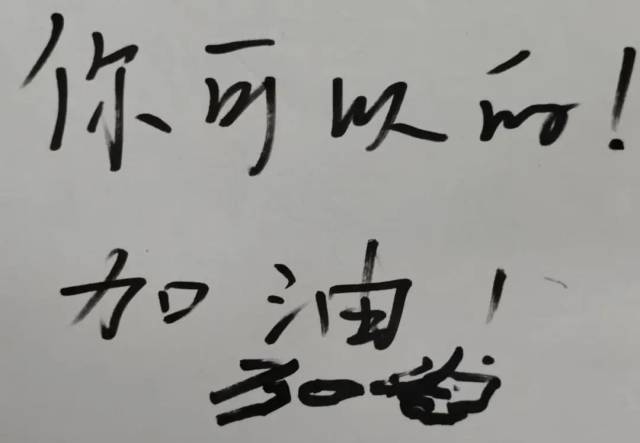 你可以的!
加油!